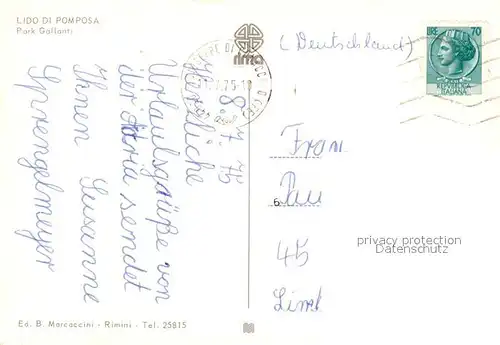 LIDO DI POMPOSA
Park Gallanti
rima
8. 7. 75
Herzliche
Urlaubsgrüße von
der Adria sendet
Ihnen Susanne
Sprengelmeyer
(Deutschland)
LIRE 70
75-18
Frau
45
privacy protection
Datenschutz
Ed. B. Marcaccini - Rimini - Tel. 25815